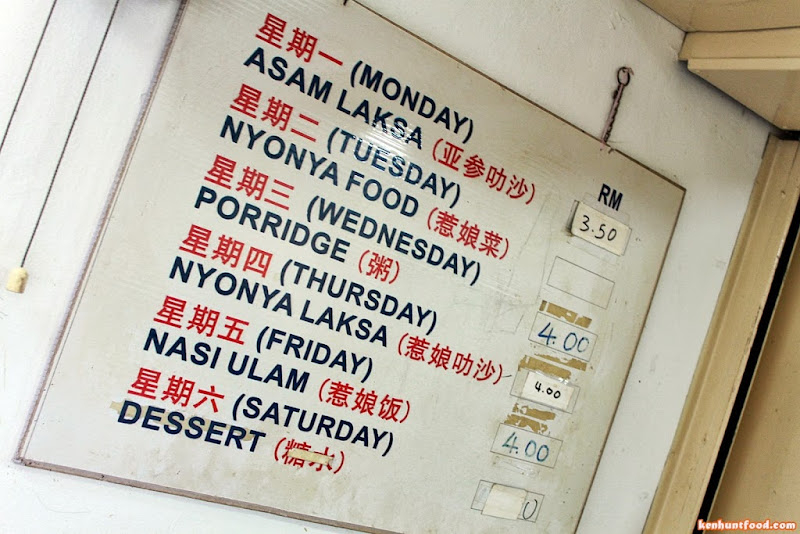 星期一 (MONDAY)
ASAM LAKSA (亚参叻沙)
RM
3.50
星期二 (TUESDAY)
NYONYA FOOD (惹娘菜)
星期三 (WEDNESDAY)
PORRIDGE (粥)
4.00
星期四 (THURSDAY)
NYONYA LAKSA (惹娘叻沙)
4.00
星期五 (FRIDAY)
NASI ULAM (惹娘饭)
4.00
星期六 (SATURDAY)
DESSERT (糖水)
0
kenhuntfood.com